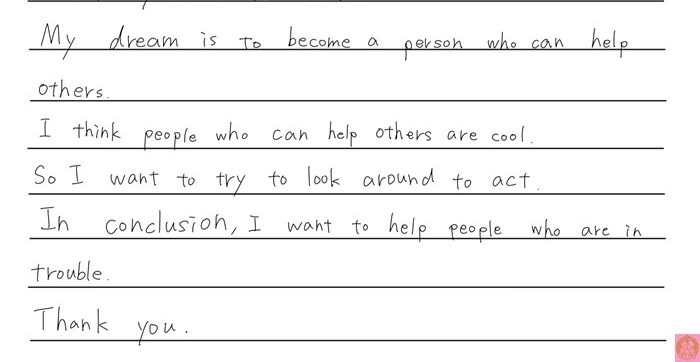 My dream is to become a person who can help
others.
I think people who can help others are cool.
So I want to try to look around to act.
In conclusion, I want to help people who are in
trouble.
Thank you.